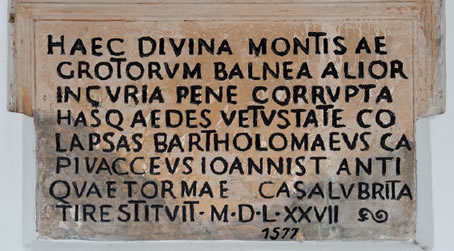 HAEC DIVINA MONTIS AE
GROTORVM BALNEA ALIOR
INCVRIA PENE CORRVPTA
HASQ AEDES VETVSTATE CO
LAPSAS BARTHOLOMAEVS CA
PIVACCEVS IOANNIST ANTI
QVAETORMAE CASALVBRITA
TIRESTITVIT·M·D·L·XXVII
1577